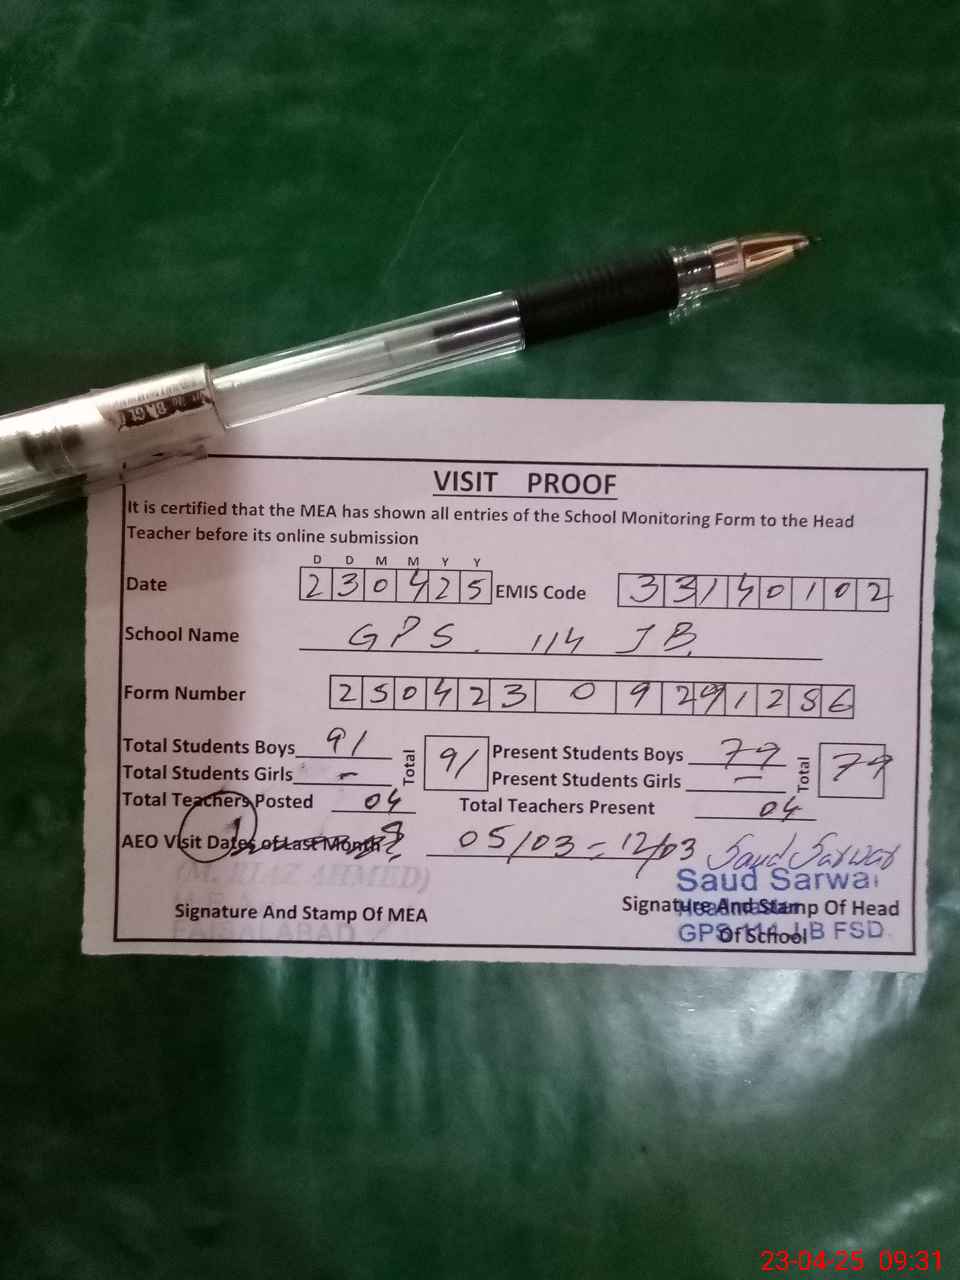 VISIT PROOF
It is certified that the MEA has shown all entries of the School Monitoring Form to the Head
Teacher before its online submission
D D M M Y Y
Date 2 3 0 4 2 5 EMIS Code 3 3 1 4 0 1 0 2
School Name GPS. 114 JB.
Form Number 2 5 0 4 2 3 0 9 2 9 1 2 5 6
Total Students Boys 91 Total 91 Present Students Boys 79 Total 79
Total Students Girls - Present Students Girls -
Total Teachers Posted 04 Total Teachers Present 04
AEO Visit Dates of Last Month 05/03 = 12/03 Saud Sarwar
(M. RIAZ AHMED) Saud Sarwar
Signature And Stamp Of MEA Signature And Stamp Of Head
Headmaster
FAISALABAD Of School
GPS 114 JB FSD.
23-04-25 09:31